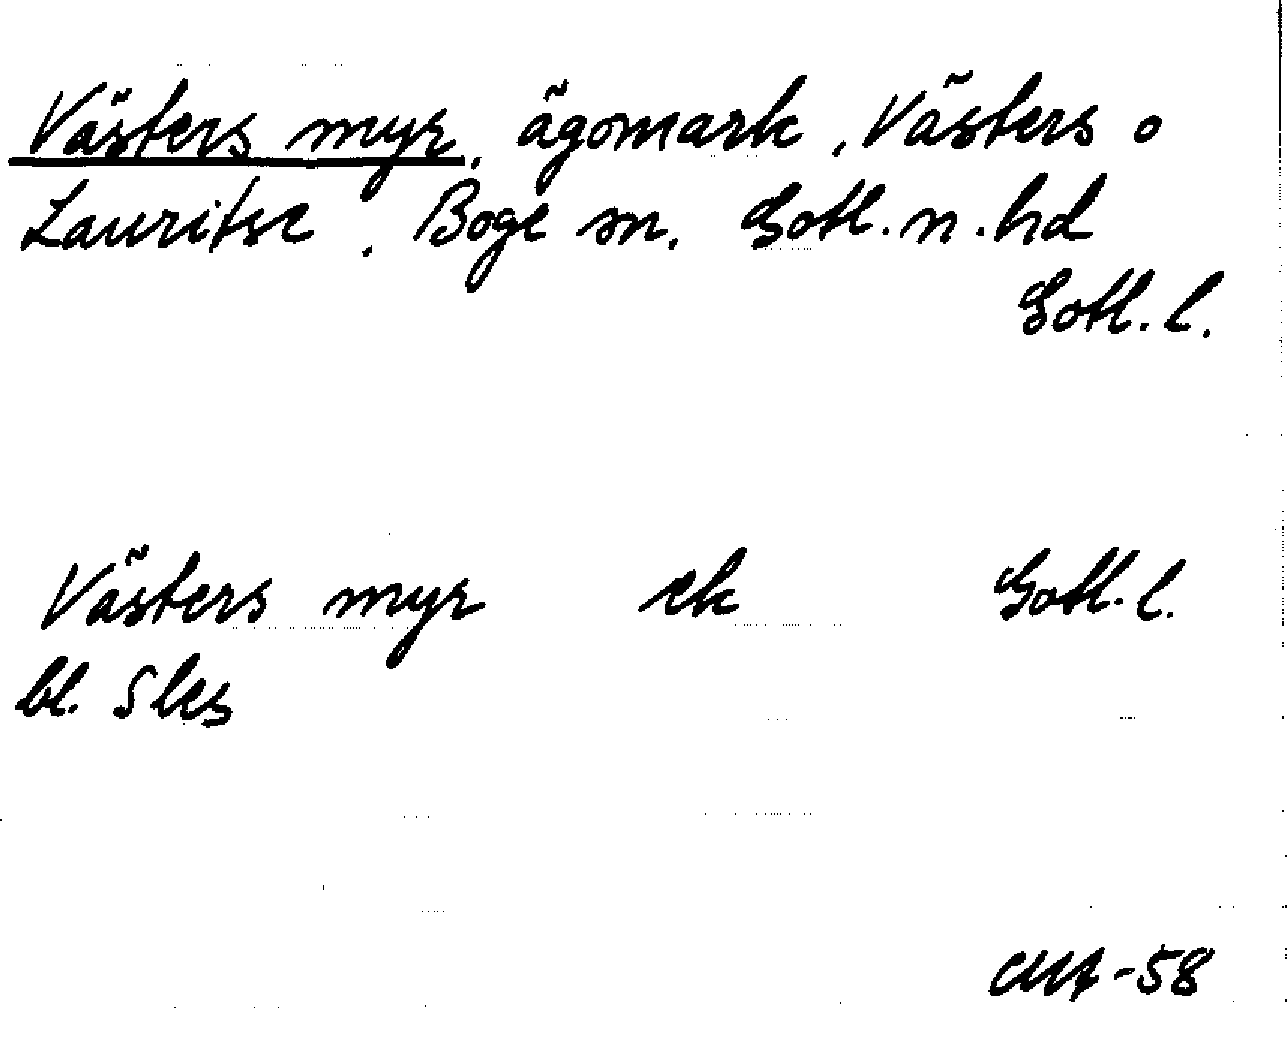 Västers myr, ägomark, Västers o
Lauritse. Boge sn. Gotl. n. hd
Gotl. l.
Västers myr ek Gotl. l.
bl. 5 les
-58